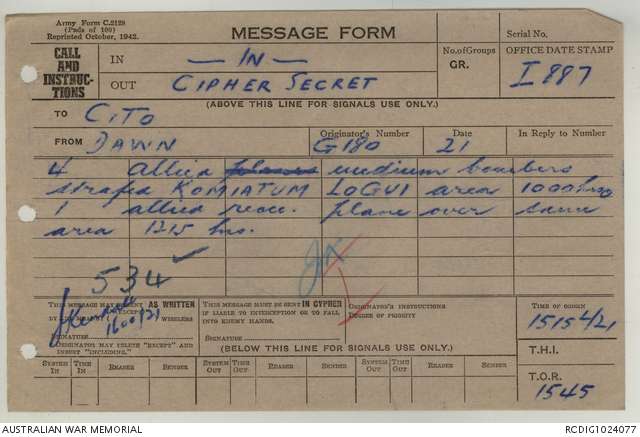 Army Form C.2128
(Pads of 100)
Reprinted October, 1942.
MESSAGE FORM
Serial No.
CALL AND INSTRUCTIONS
IN
— IN —
No. of Groups
GR.
OFFICE DATE STAMP
I 887
OUT
CIPHER SECRET
(ABOVE THIS LINE FOR SIGNALS USE ONLY.)
TO CITO
FROM DAWN
Originator's Number G180
Date 21
In Reply to Number
4 Allied planes medium bombers
strafed KOMIATUM LOGUI area 1000 hrs
1 allied recce. plane over same
area 1215 hrs.
534
THIS MESSAGE MAY BE SENT AS WRITTEN
BY ANY MEANS
WIRELESS
1600/21
SIGNATURE
ORIGINATOR MAY DELETE "EXCEPT" AND
INSERT "INCLUDING."
THIS MESSAGE MUST BE SENT IN CIPHER
IF LIABLE TO INTERCEPTION OR TO FALL
INTO ENEMY HANDS.
SIGNATURE
ORIGINATOR'S INSTRUCTIONS
DEGREE OF PRIORITY
TIME OF ORIGIN
1515 4/21
(BELOW THIS LINE FOR SIGNALS USE ONLY.)
T.H.I.
SYSTEM IN TIME IN READER SENDER SYSTEM OUT TIME OUT READER SENDER SYSTEM OUT TIME OUT READER SENDER
T.O.R.
1545
AUSTRALIAN WAR MEMORIAL
RCDIG1024077